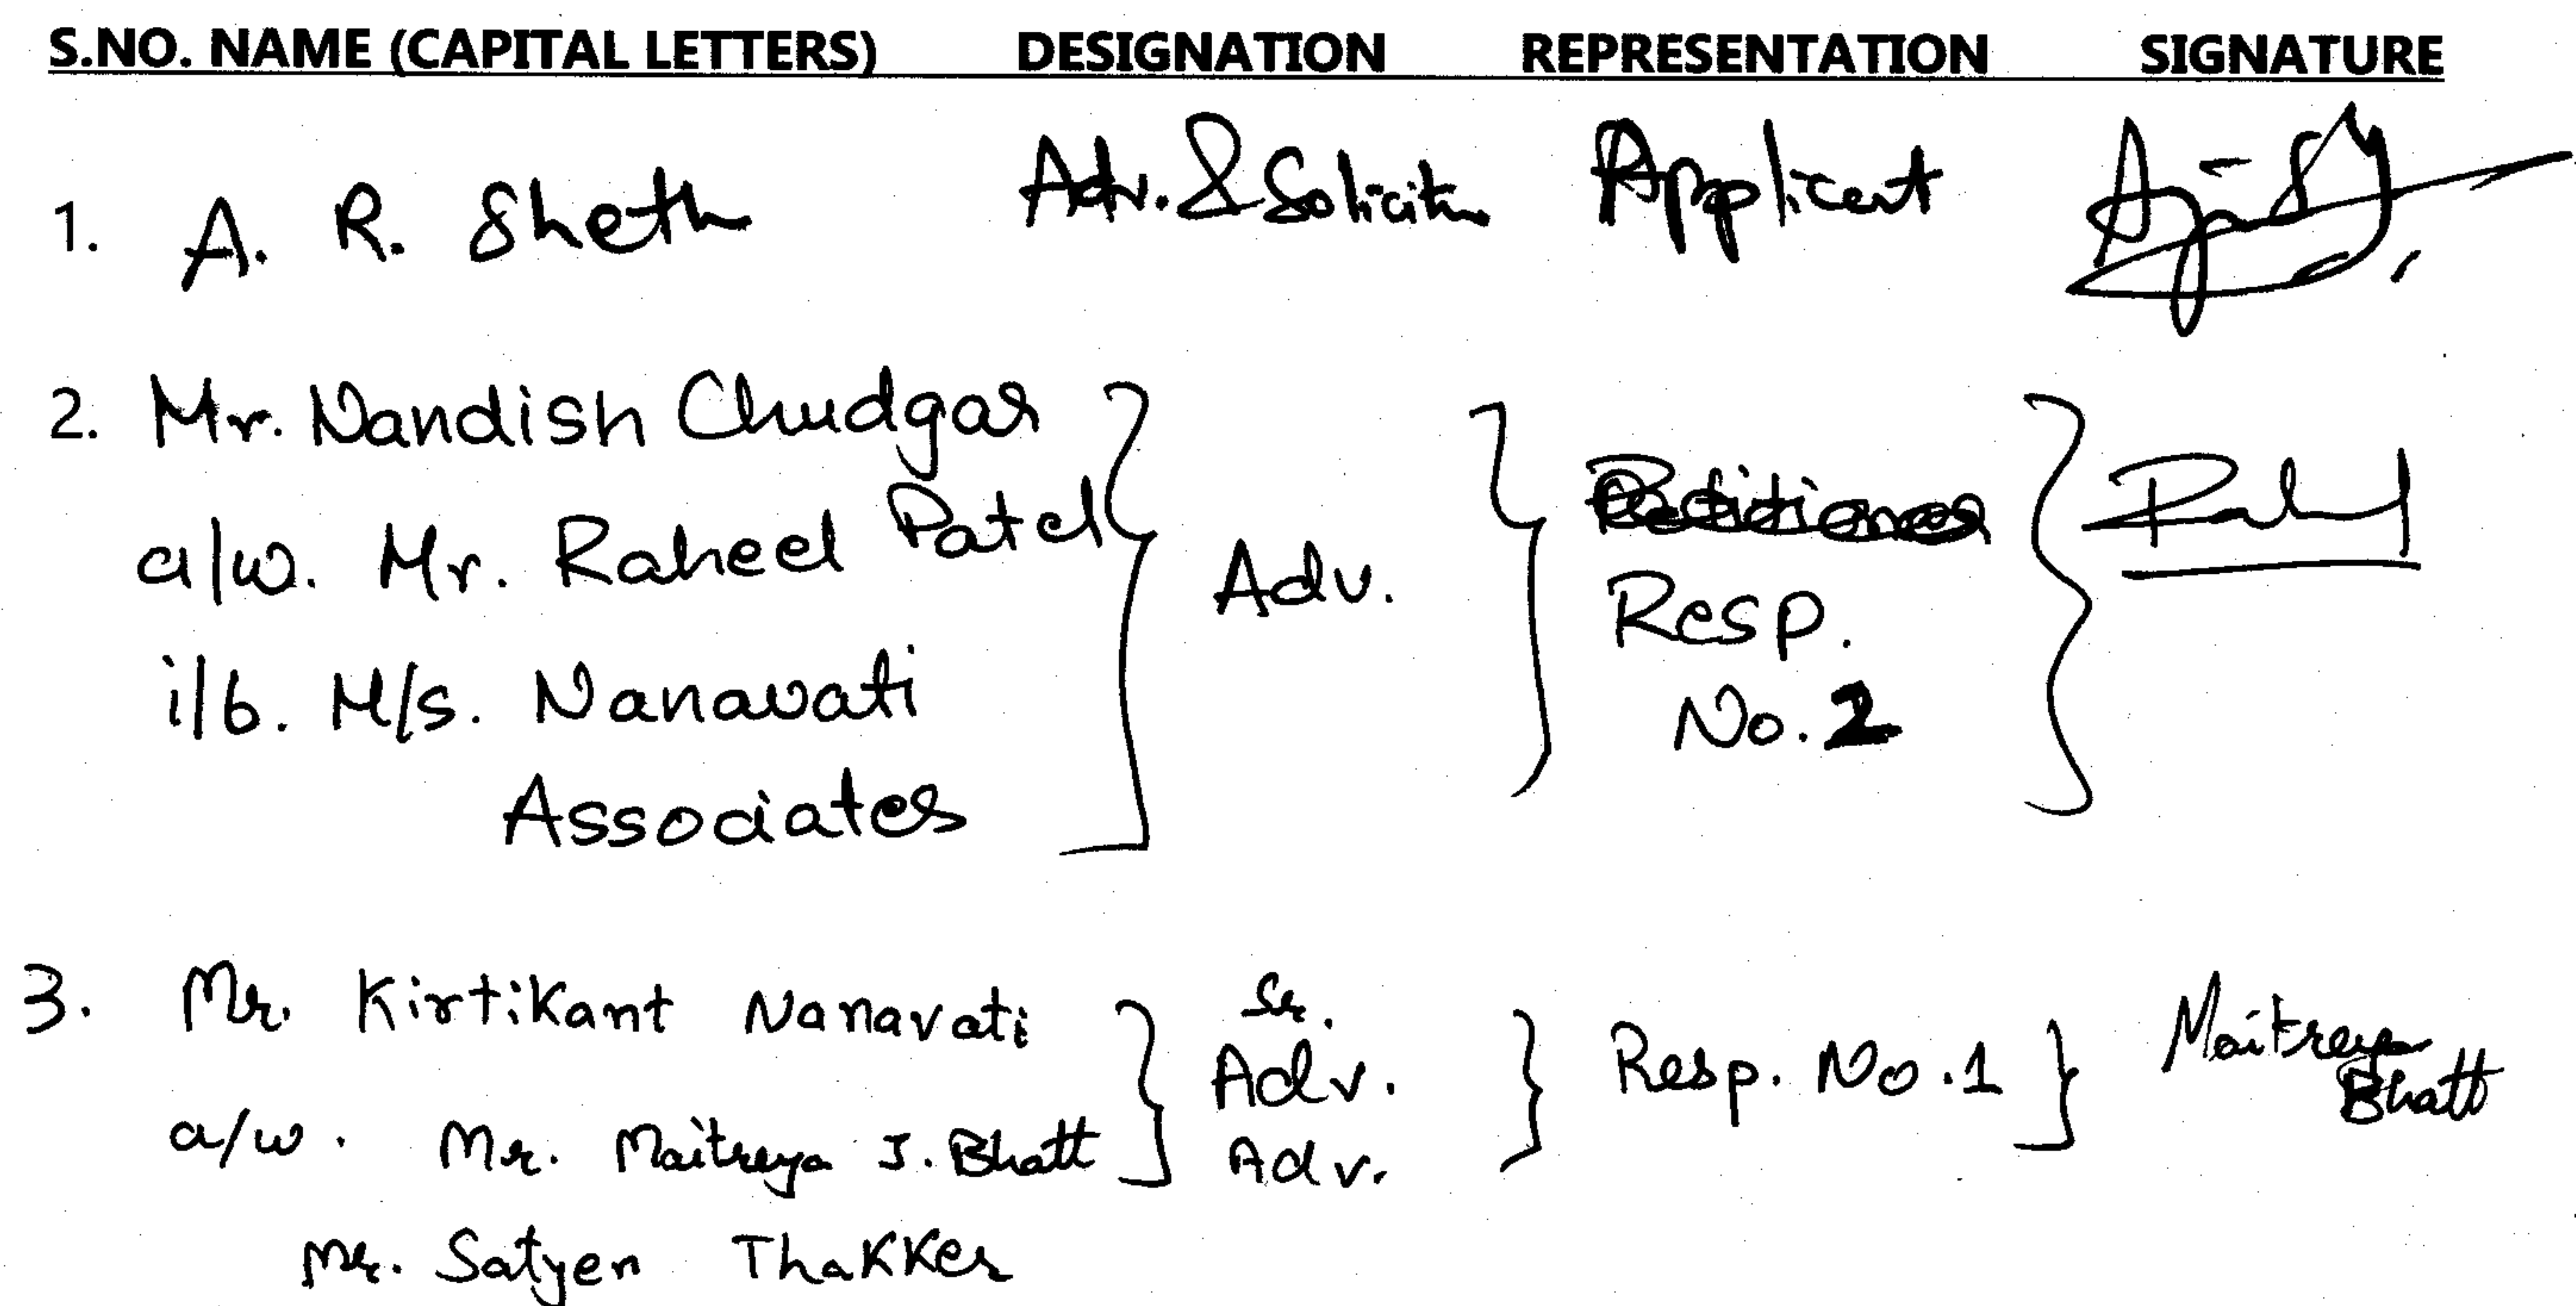 S.NO. NAME (CAPITAL LETTERS) DESIGNATION REPRESENTATION SIGNATURE
1. A. R. Sheth Adv. & Solicitor Applicant
2. Mr. Nandish Chudgar
a/w. Mr. Raheel Patel
i/b. M/s. Nanavati
Associates
Adv.
Petitioner
Resp.
No. 2
3. Mr. Kirtikant Nanavati
a/w. Mr. Maitreya J. Bhatt
Mr. Satyen Thakker
Sr.
Adv.
Adv.
Resp. No. 1
Maitreya
Bhatt